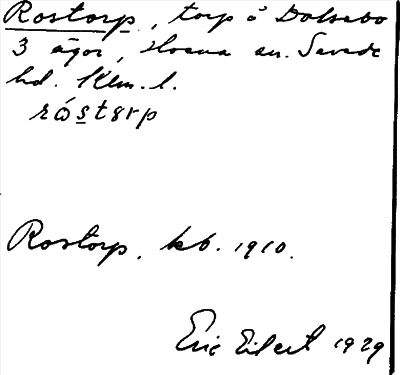 Rostorp, torp å Dalsebo
3 ägor, Mosua sn. Sevede
hd. Klm. l.
råstørp
Rostorp. kb. 1910.
Eric Eilert 1929